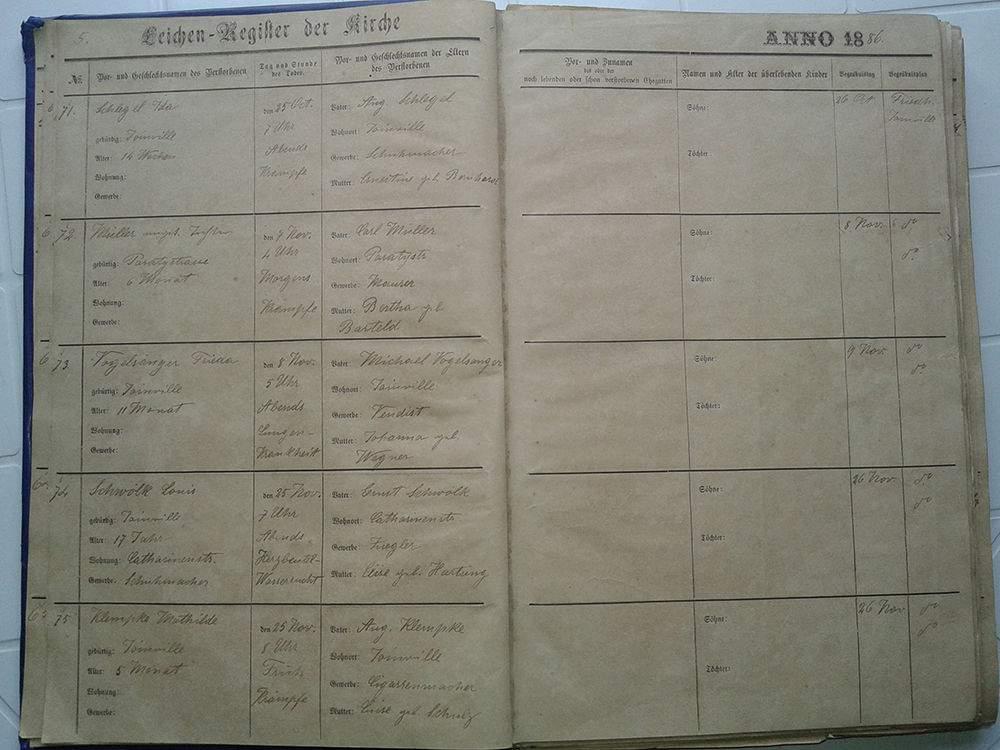 5.
Leichen-Register der Kirche
ANNO 1886.
No.
Vor- und Geschlechtsnamen des Verstorbenen
Tag und Stunde des Todes
Vor- und Geschlechtsnamen der Eltern des Verstorbenen
Vor- und Zunamen des oder der noch lebenden oder schon verstorbenen Ehegatten
Namen und Alter der überlebenden Kinder
Begräbnißtag
Begräbnißplatz
71.
Schlegel Ida
gebürtig: Joinville
Alter: 14 Wochen
Wohnung:
Gewerbe:
den 25 Oct.
7 Uhr
Abends
Krämpfe
Vater: Aug. Schlegel
Wohnort: Joinville
Gewerbe: Schuhmacher
Mutter: Ernestine geb. Bernhardt
Söhne:
Töchter:
26 Oct
Friedh.
Joinville
72.
Müller
gebürtig: Paratystrasse
Alter: 6 Monat
Wohnung:
Gewerbe:
den 7 Nov.
4 Uhr
Morgens
Krämpfe
Vater: Carl Müller
Wohnort: Paratystr
Gewerbe: Maurer
Mutter: Bertha geb
Barteld
Söhne:
Töchter:
8 Nov.
do
do
73.
Vogelsänger Frieda
gebürtig: Joinville
Alter: 11 Monat
Wohnung:
Gewerbe:
den 8 Nov.
5 Uhr
Abends
Lungen-
Krankheit
Vater: Michael Vogelsanger
Wohnort: Joinville
Gewerbe: Vendist
Mutter: Johanna geb.
Wegner
Söhne:
Töchter:
9 Nov.
do
do
74
Schwölk Louis
gebürtig: Joinville
Alter: 17 Jahr
Wohnung: Catharinenstr.
Gewerbe: Schuhmacher
den 25 Nov.
7 Uhr
Abends
Herzbeutel-
Wassersucht
Vater: Ernst Schwölk
Wohnort: Catharinenstr
Gewerbe: Ziegler
Mutter: Elise geb. Hartung
Söhne:
Töchter:
26 Nov.
do
do
75.
Klempke Mathilde
gebürtig: Joinville
Alter: 5 Monat
Wohnung:
Gewerbe:
den 25 Nov.
8 Uhr
Früh
Krämpfe
Vater: Aug. Klempke
Wohnort: Joinville
Gewerbe: Cigarrenmacher
Mutter: Luise geb. Schulz
Söhne:
Töchter:
26 Nov
do
do